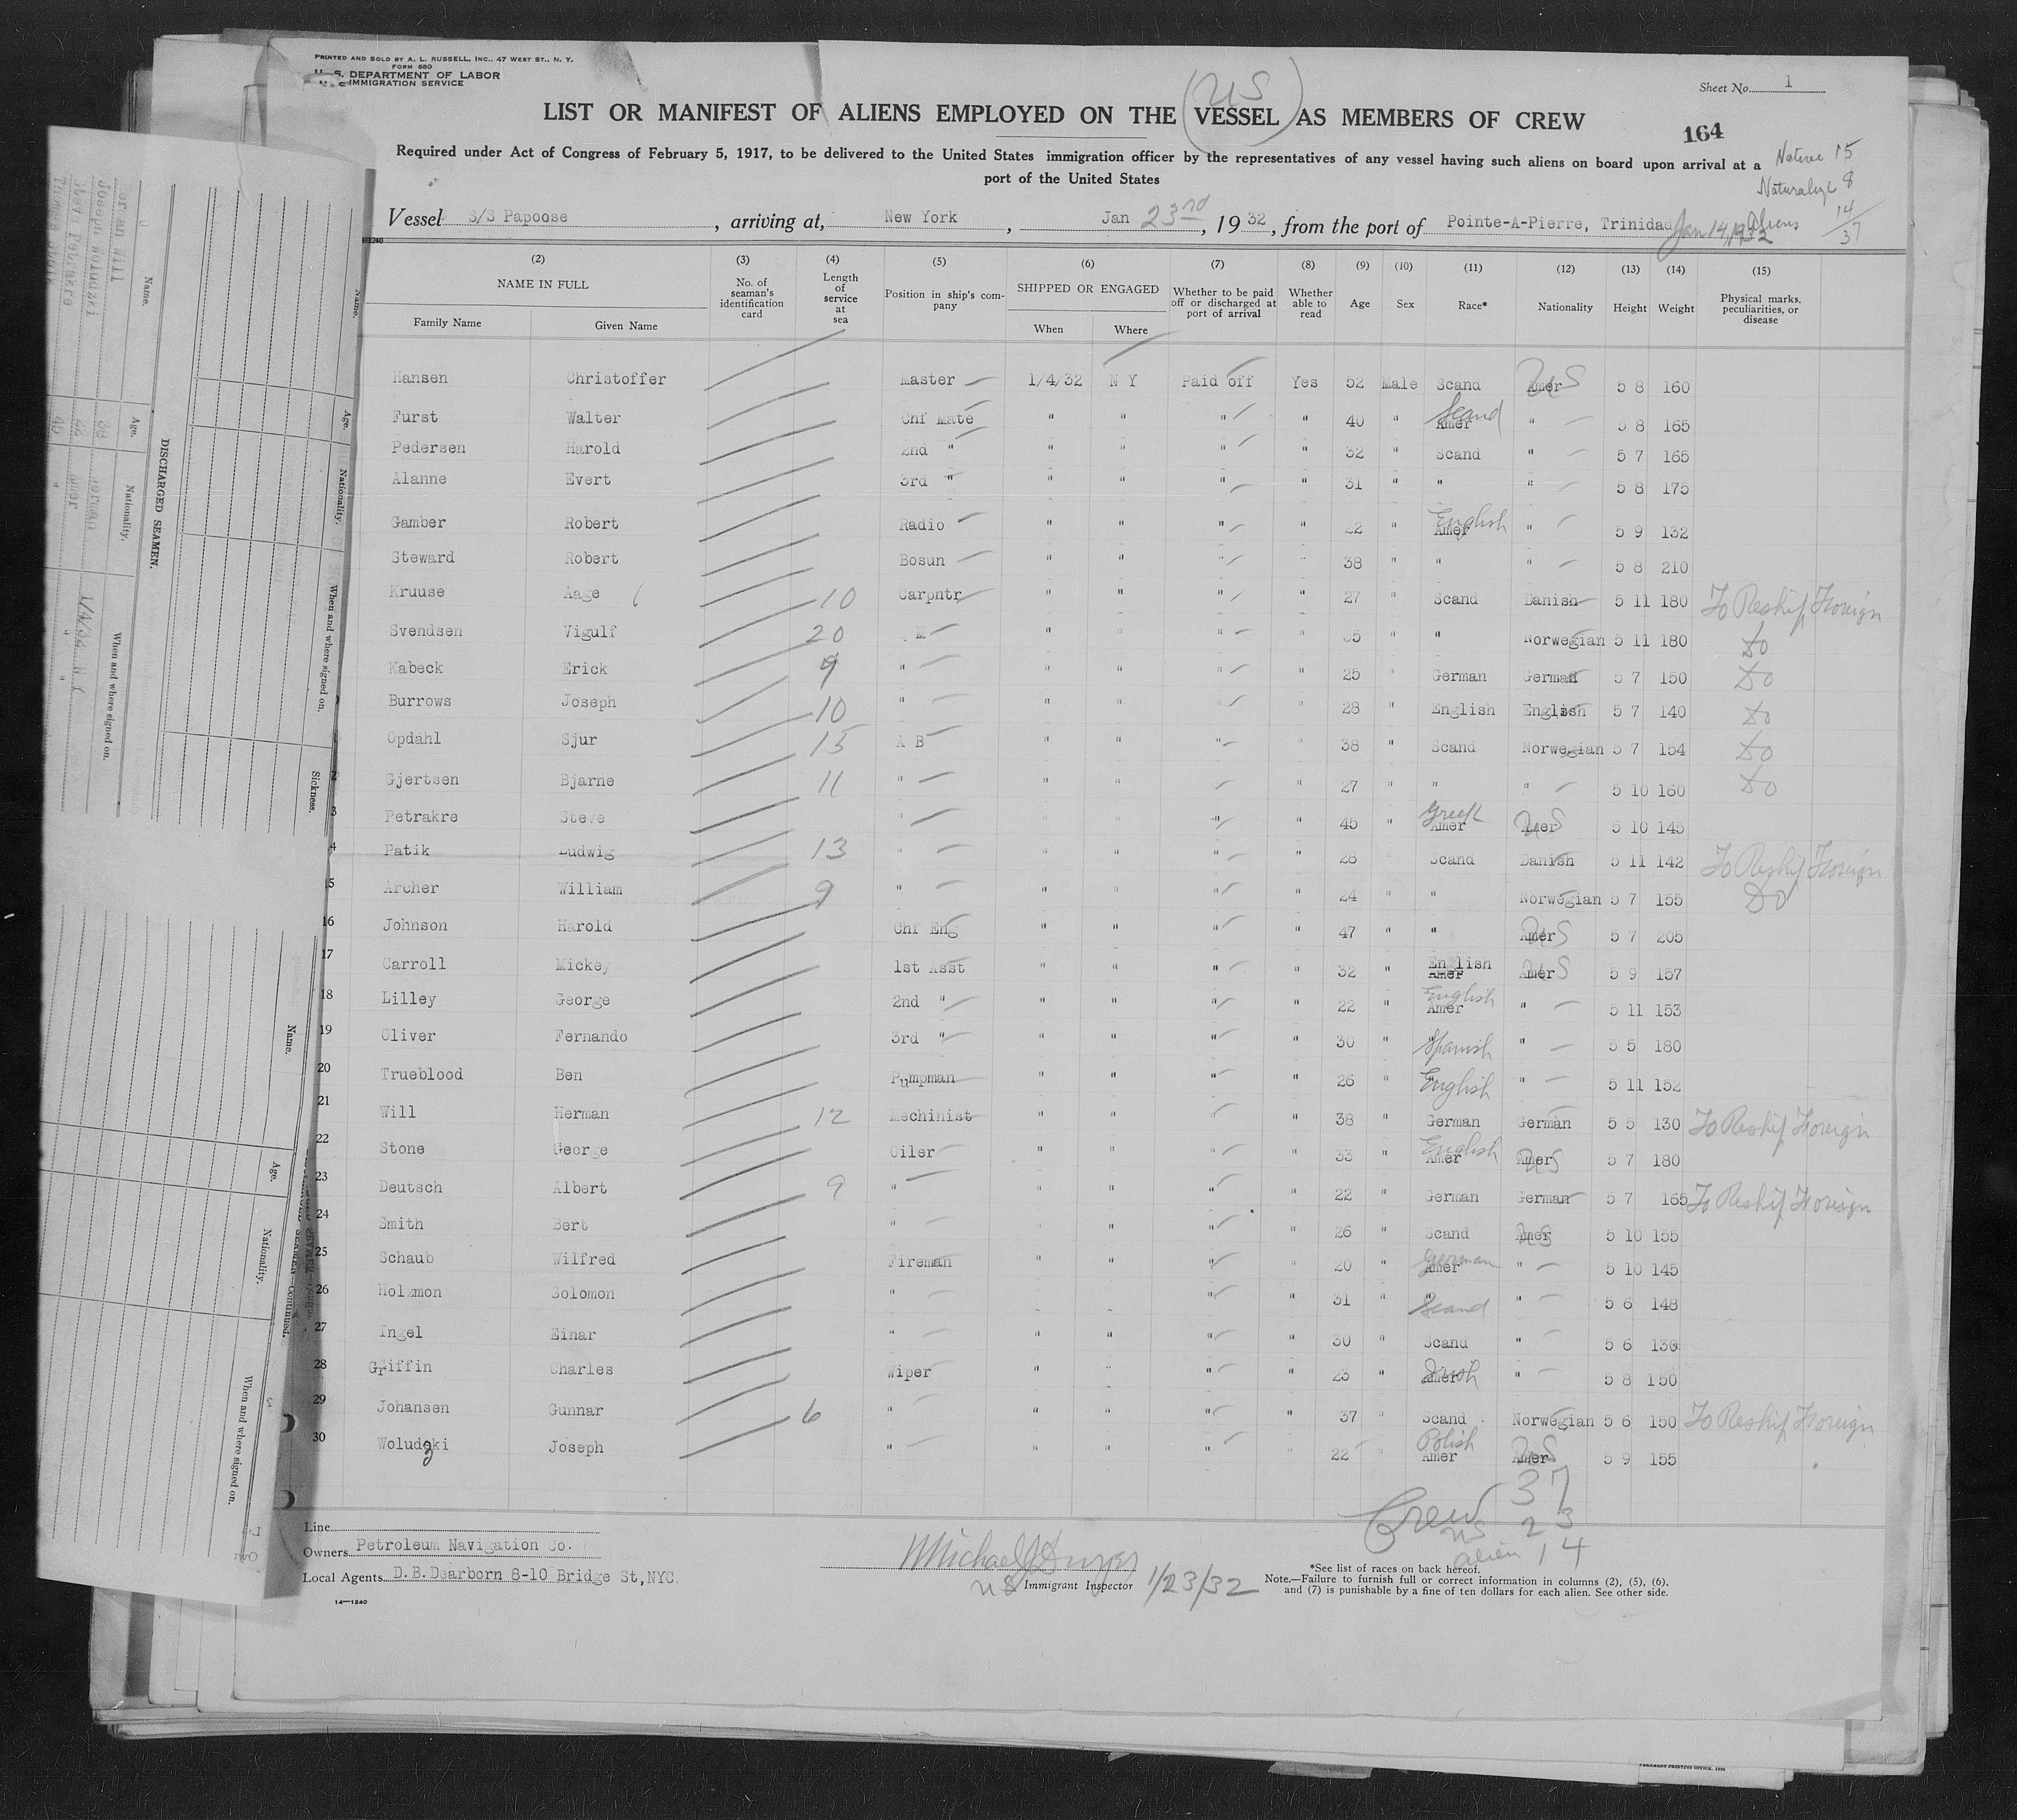 PRINTED AND SOLD BY A. L. RUSSELL, INC., 47 WEST ST., N. Y.
FORM 680
U. S. DEPARTMENT OF LABOR
IMMIGRATION SERVICE
Sheet No. 1
US
LIST OR MANIFEST OF ALIENS EMPLOYED ON THE VESSEL AS MEMBERS OF CREW
164
Required under Act of Congress of February 5, 1917, to be delivered to the United States immigration officer by the representatives of any vessel having such aliens on board upon arrival at a
port of the United States
Native 15
Naturalize 8
Aliens 14
37
Vessel S/S Papoose, arriving at, New York, Jan 23rd, 1932, from the port of Pointe-A-Pierre, Trinidad Jan 14, 1932
(2) (3) (4) (5) (6) (7) (8) (9) (10) (11) (12) (13) (14) (15)
NAME IN FULL No. of seaman's identification card Length of service at sea Position in ship's company SHIPPED OR ENGAGED Whether to be paid off or discharged at port of arrival Whether able to read Age Sex Race* Nationality Height Weight Physical marks, peculiarities, or disease
Family Name Given Name When Where
Hansen Christoffer Master 1/4/32 N Y Paid off Yes 52 Male Scand Amer US 5 8 160
Furst Walter Chf Mate " " " " 40 " Amer Scand " 5 8 165
Pedersen Harold 2nd " " " " " 32 " Scand " 5 7 165
Alanne Evert 3rd " " " " " 31 " " " 5 8 175
Gamber Robert Radio " " " " 22 " Amer English " 5 9 132
Steward Robert Bosun " " " " 38 " " " 5 8 210
Kruuse Aage 10 Carpntr " " " " 27 " Scand Danish 5 11 180 To Reship Foreign
Svendsen Vigulf 20 M " " " " 35 " " Norwegian 5 11 180 Do
Kabeck Erick 9 " " " " " 25 " German German 5 7 150 Do
Burrows Joseph 10 " " " " " 28 " English English 5 7 140 Do
Opdahl Sjur 15 A B " " " " 38 " Scand Norwegian 5 7 154 Do
Gjertsen Bjarne 11 " " " " 27 " " " 5 10 160 Do
Petrakre Steve " " " " " 45 " Amer Greek Amer US 5 10 145
Patik Ludwig 13 " " " " " 28 Scand Danish 5 11 142 To Reship Foreign
15 Archer William 9 " " " " " 24 " " Norwegian 5 7 155 Do
16 Johnson Harold Chf Eng " " " " 47 " " Amer US 5 7 205
17 Carroll Mickey 1st Asst " " " " 32 " Amer English Amer US 5 9 157
18 Lilley George 2nd " " " " " 22 " Amer English " 5 11 153
19 Oliver Fernando 3rd " " " " " 30 " Spanish " 5 5 180
20 Trueblood Ben Pumpman " " " " 26 " English " 5 11 152
21 Will Herman 12 Mechinist " " " 38 " German German 5 5 130 To Reship Foreign
22 Stone George Oiler " " " " 33 " Amer English Amer US 5 7 180
23 Deutsch Albert 9 " " " " " 22 " German German 5 7 165 To Reship Foreign
24 Smith Bert " " " " " 26 " Scand Amer US 5 10 155
25 Schaub Wilfred Fireman " " " " 20 " Amer German " 5 10 145
26 Holzmon Solomon " " " 31 " Scand " 5 6 148
27 Ingel Einar " " " " " 30 " Scand " 5 6 130
28 Griffin Charles Wiper " " " " 23 " Amer Irish " 5 8 150
29 Johansen Gunnar 6 " " " " " 37 " Scand Norwegian 5 6 150 To Reship Foreign
30 Woludzki Joseph " " " " 22 Amer Polish Amer US 5 9 155
Crew 37
US 23
alien 14
Line
Owners Petroleum Navigation Co.
Local Agents D.B.Dearborn 8-10 Bridge St,NYC.
14—1240
US Immigrant Inspector 1/23/32
*See list of races on back hereof.
Note.—Failure to furnish full or correct information in columns (2), (5), (6),
and (7) is punishable by a fine of ten dollars for each alien. See other side.
DISCHARGED SEAMEN.
Name. Age. Nationality. When and where signed on.
Name. Age. Nationality. When and where signed on. Sickness.
Name. Age. Nationality. When and where signed on.